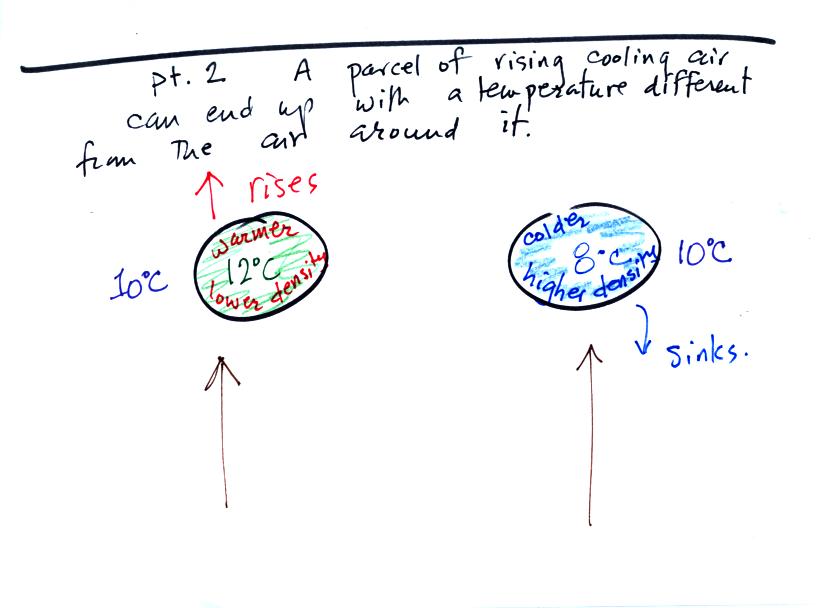 pt. 2 A parcel of rising cooling air
can end up with a temperature different
from The air around it.
rises
warmer
10°C 12°C
lower density
colder
8°C 10°C
higher density
sinks.